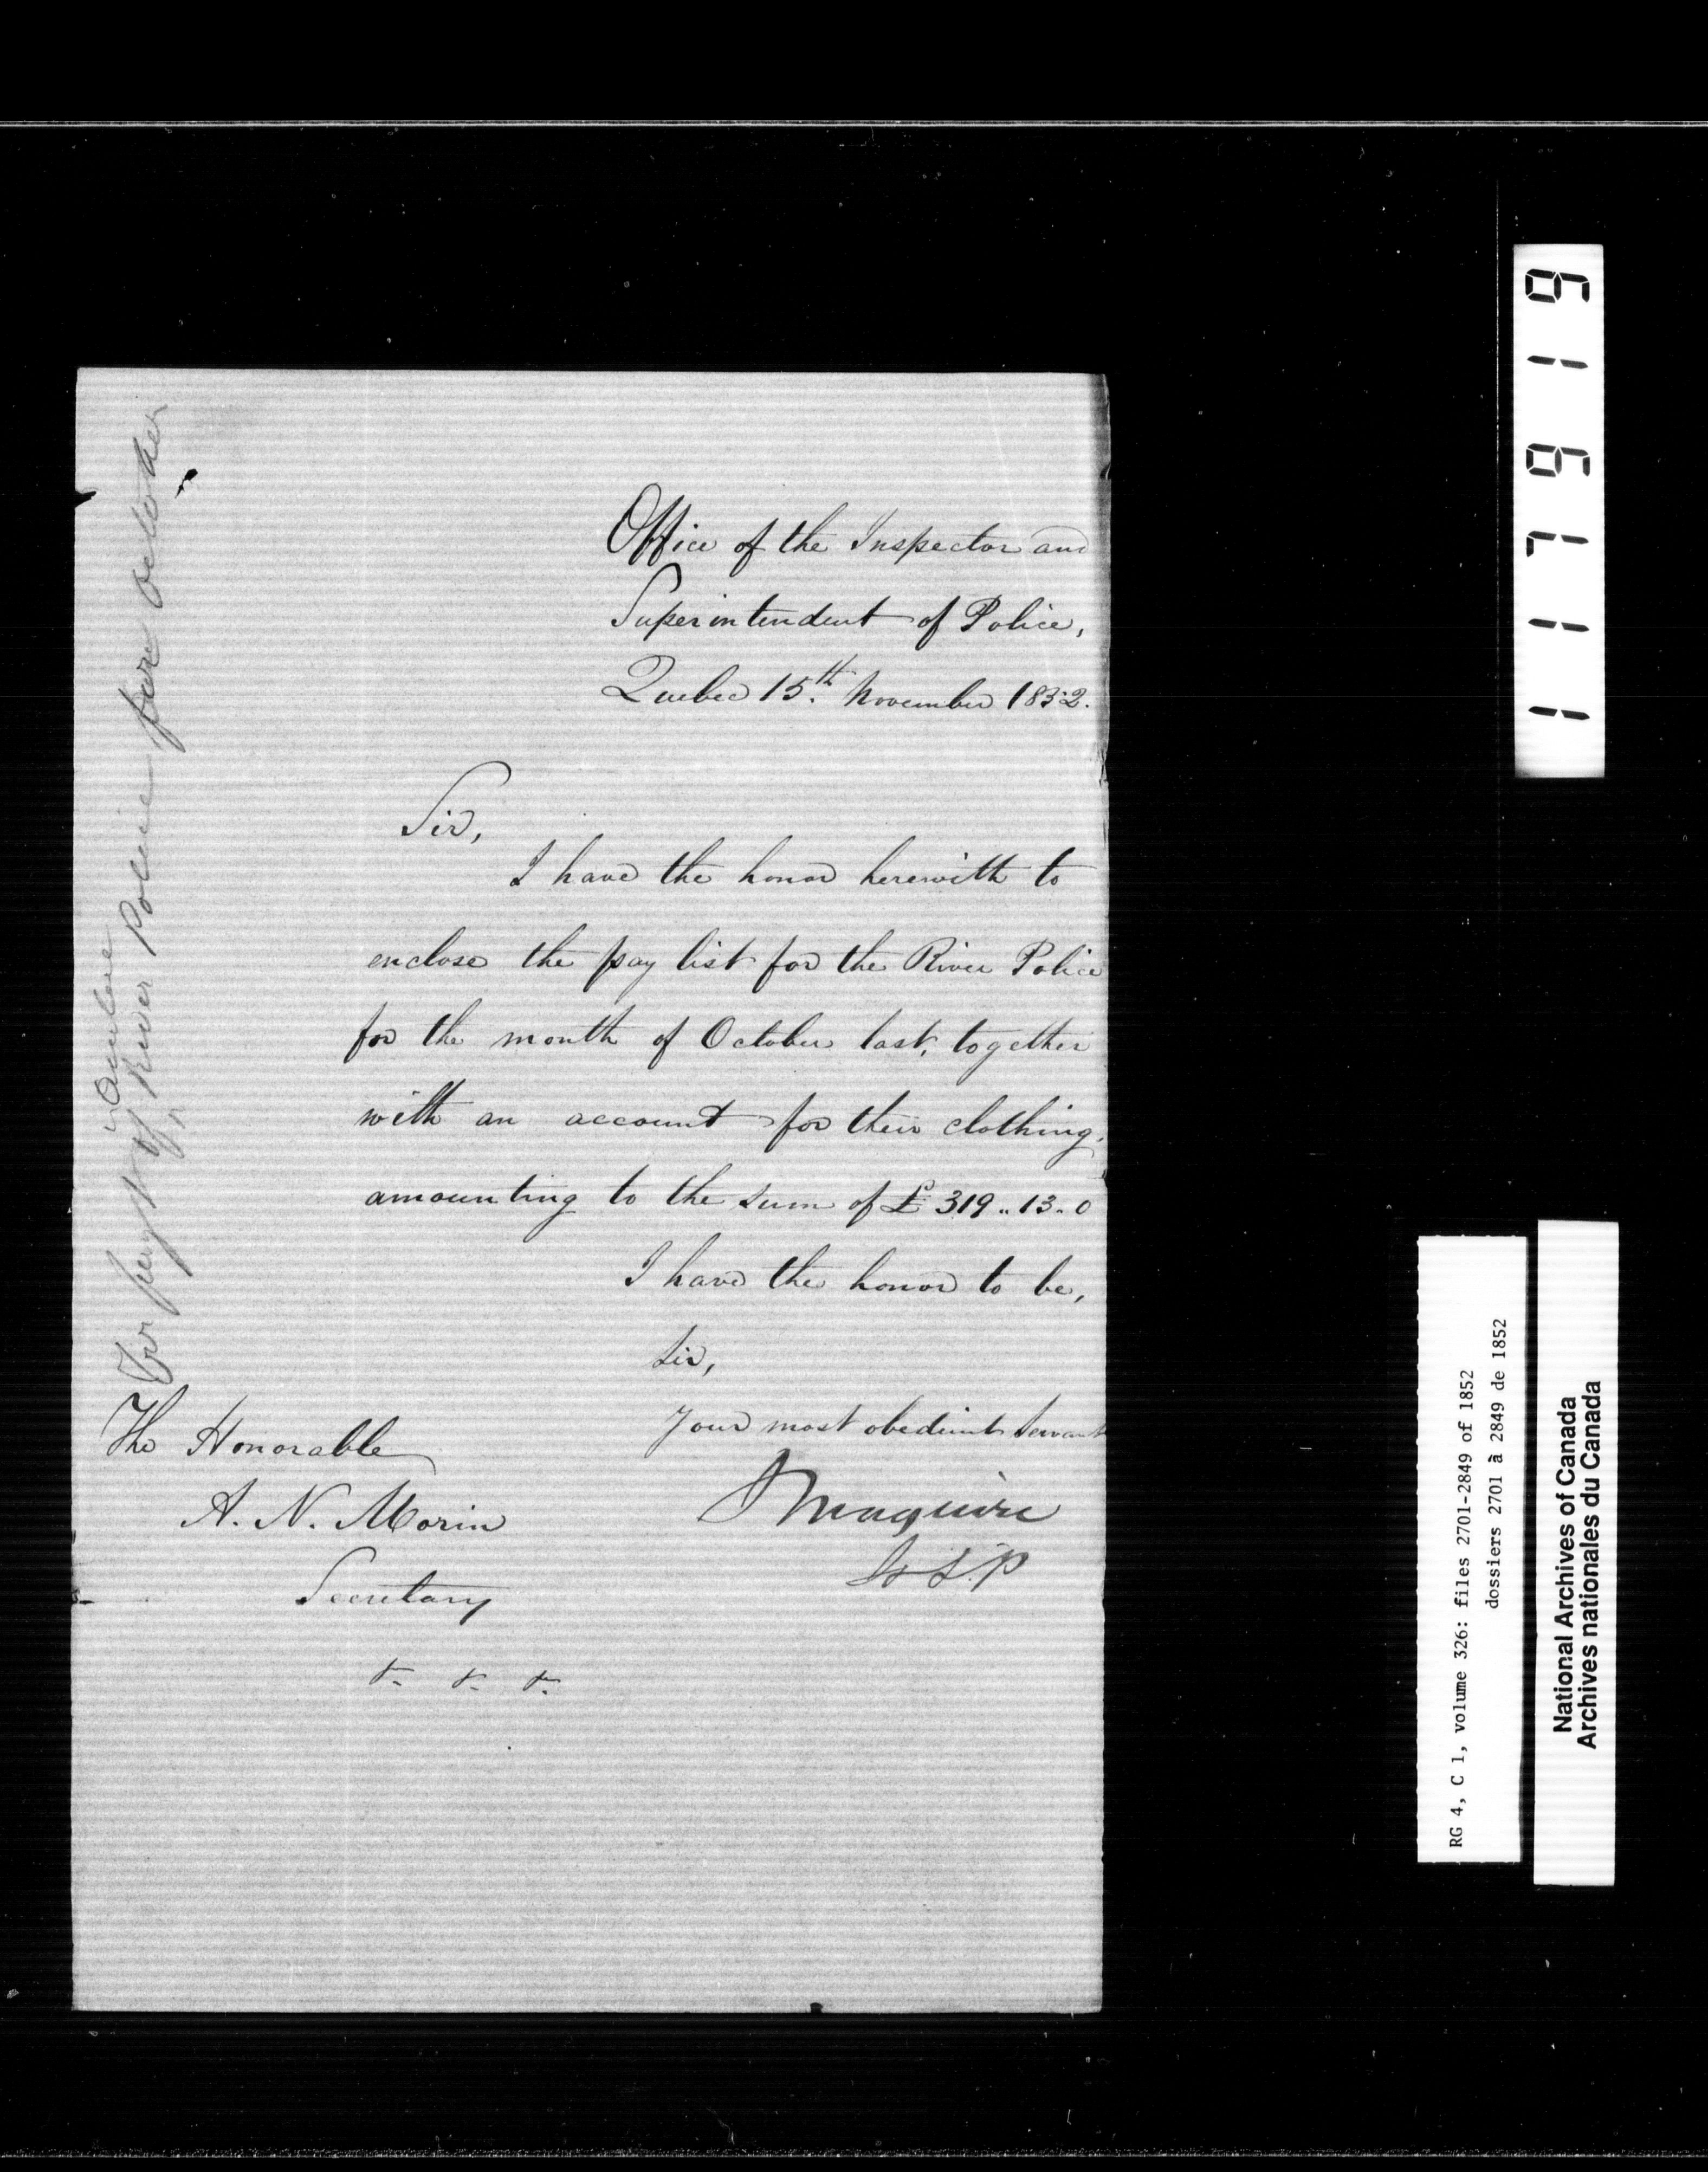 Office of the Inspector and
Superintendent of Police,
Quebec 15th. November 1852.
Sir,
I have the honor herewith to
enclose the pay list for the River Police
for the month of October last, together
with an account for their clothing,
amounting to the sum of £ 319..13..0
I have the honor to be,
Sir,
Your most obedient Servant
Maguire
I & S.P
The Honorable
A. N. Morin
Secretary
&. &. &.
For payt of River Police for October
117619
RG 4, C 1, volume 326: files 2701-2849 of 1852
dossiers 2701 à 2849 de 1852
National Archives of Canada
Archives nationales du Canada